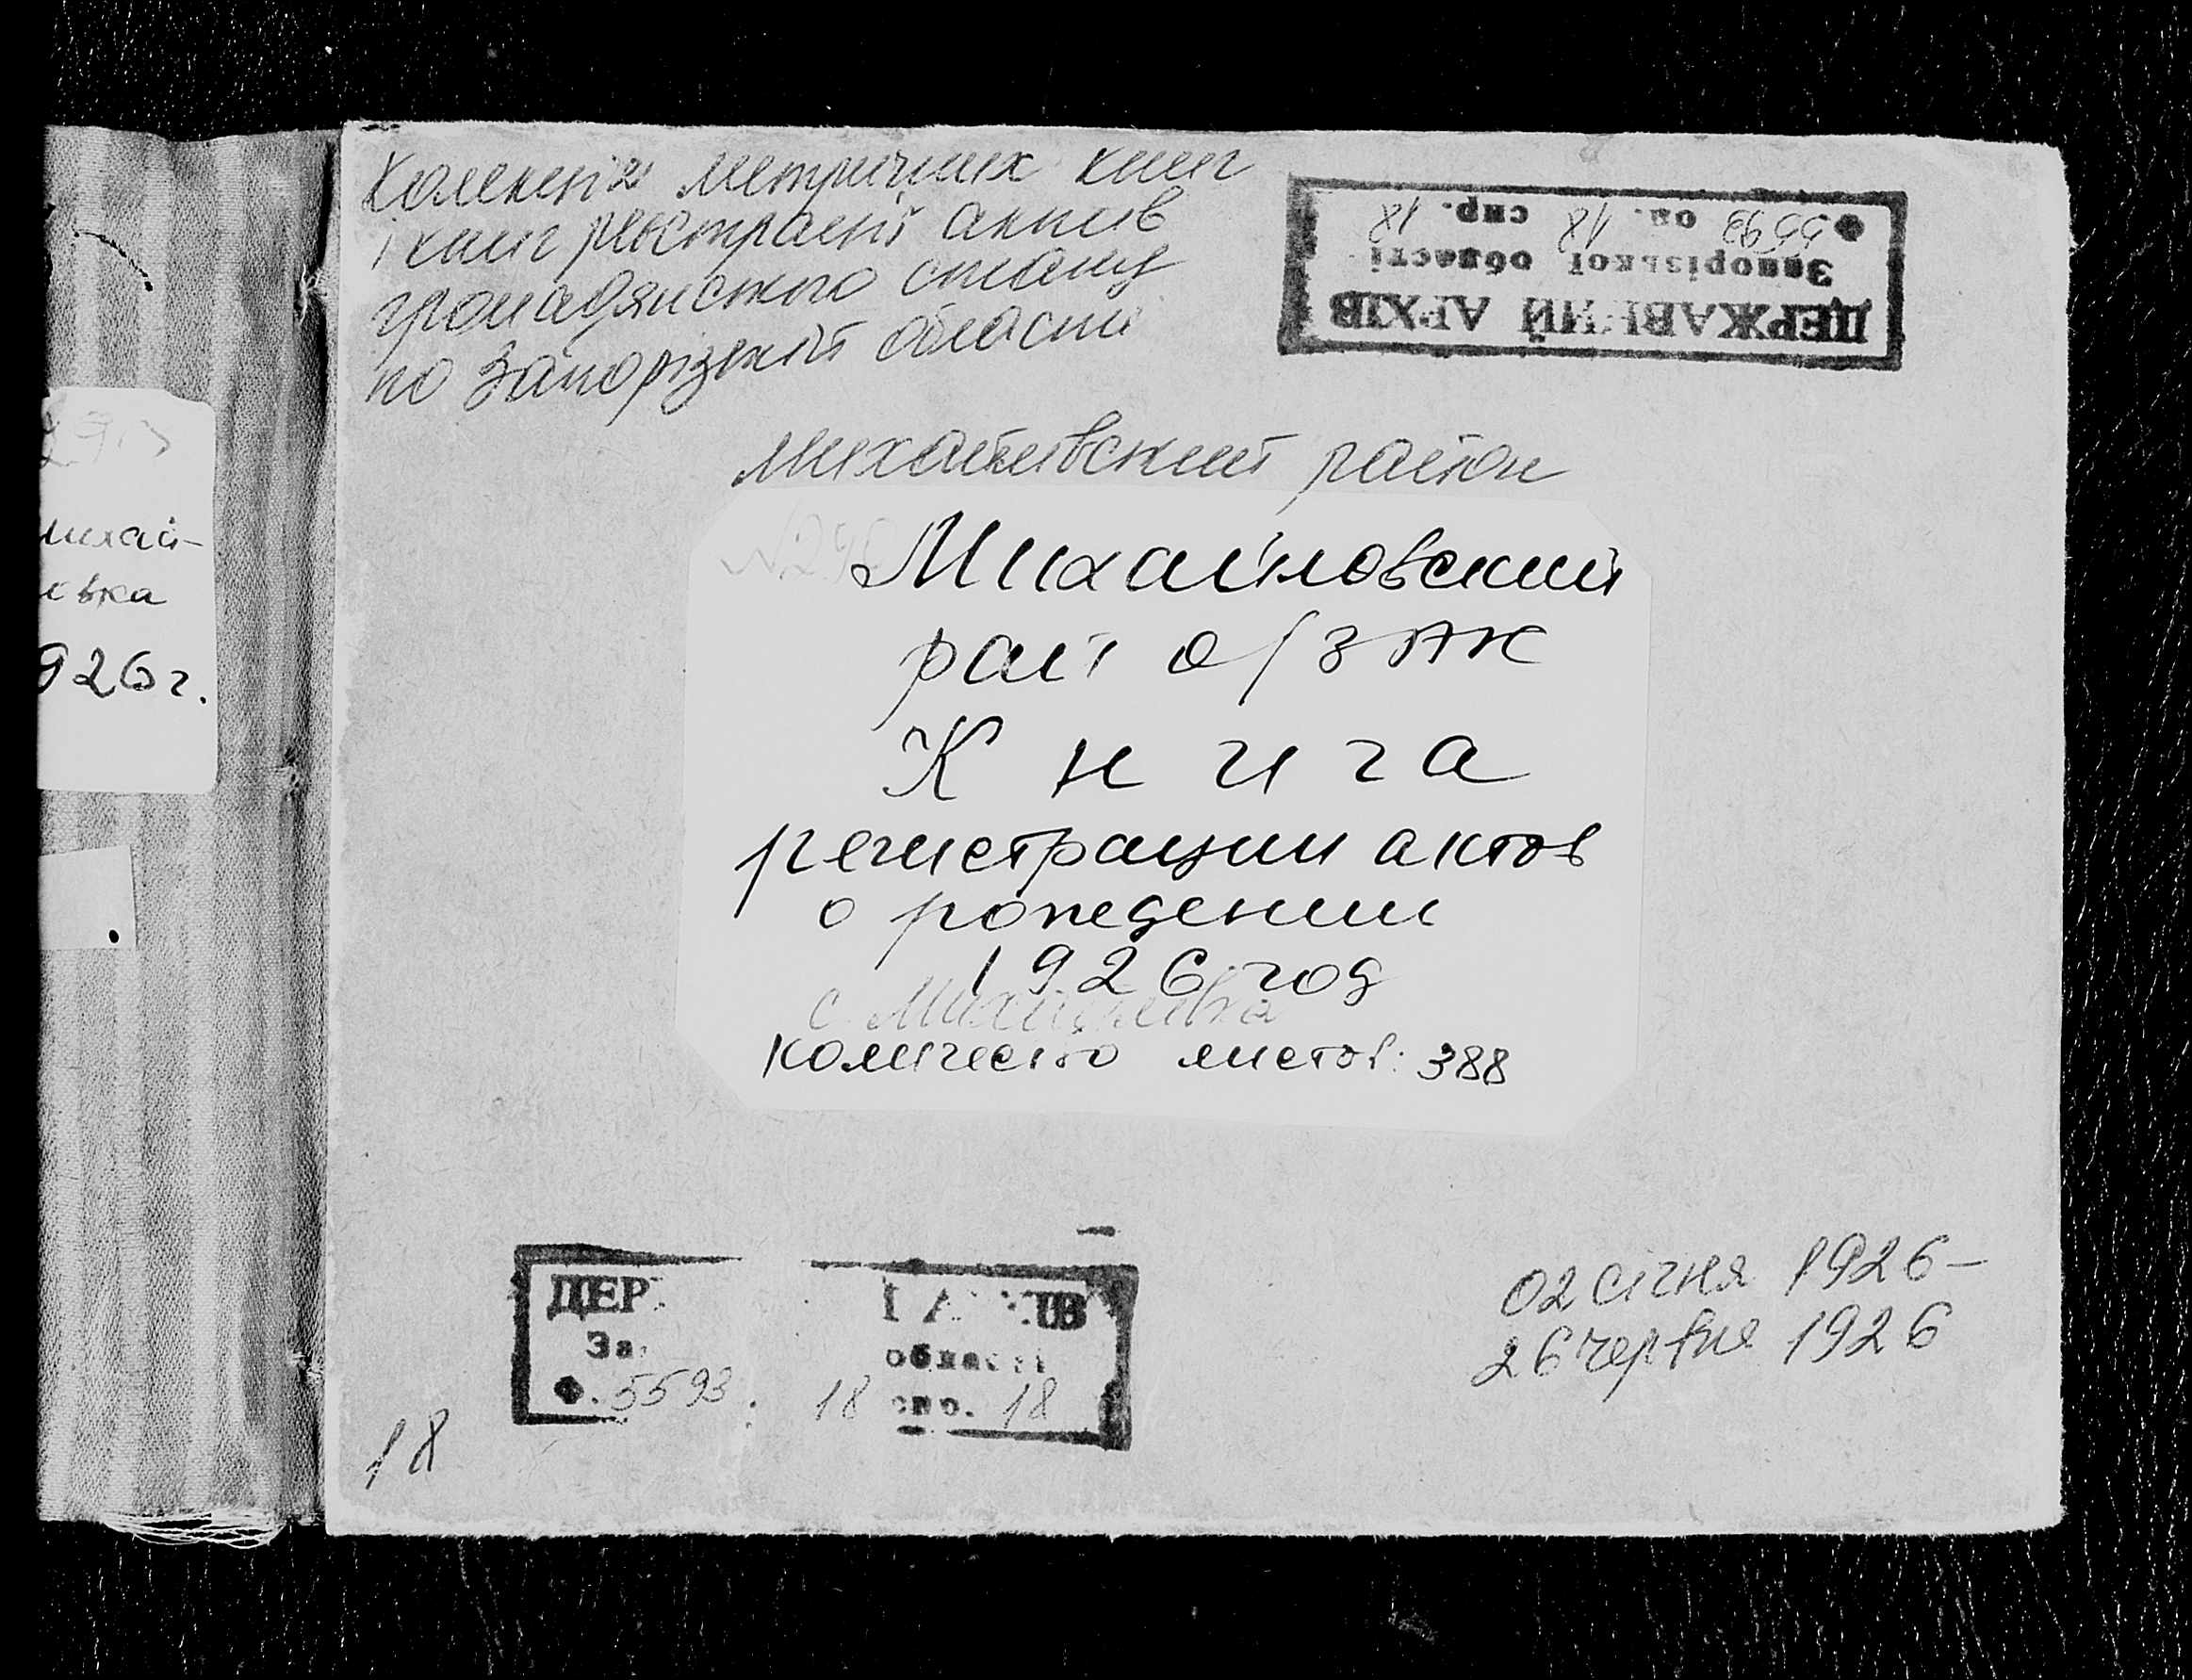 Колекція метричних книг
і книг реєстрації актів
громадянського стану
по Запорізькій області
ДЕРЖАВНИЙ АРХІВ
Запорізької області
Ф 5593 оп. 18 спр. 18
Михайлівський район
Михайловский
рай о/загс
Книга
регистрации актов
о рождении
1926 год
с. Михайлівка
количество листов: 388
михай-
овка
926 г.
ДЕР АРХІВ
За області
Ф. 5593 18 спр. 18
02 січня 1926 –
26 червня 1926
18